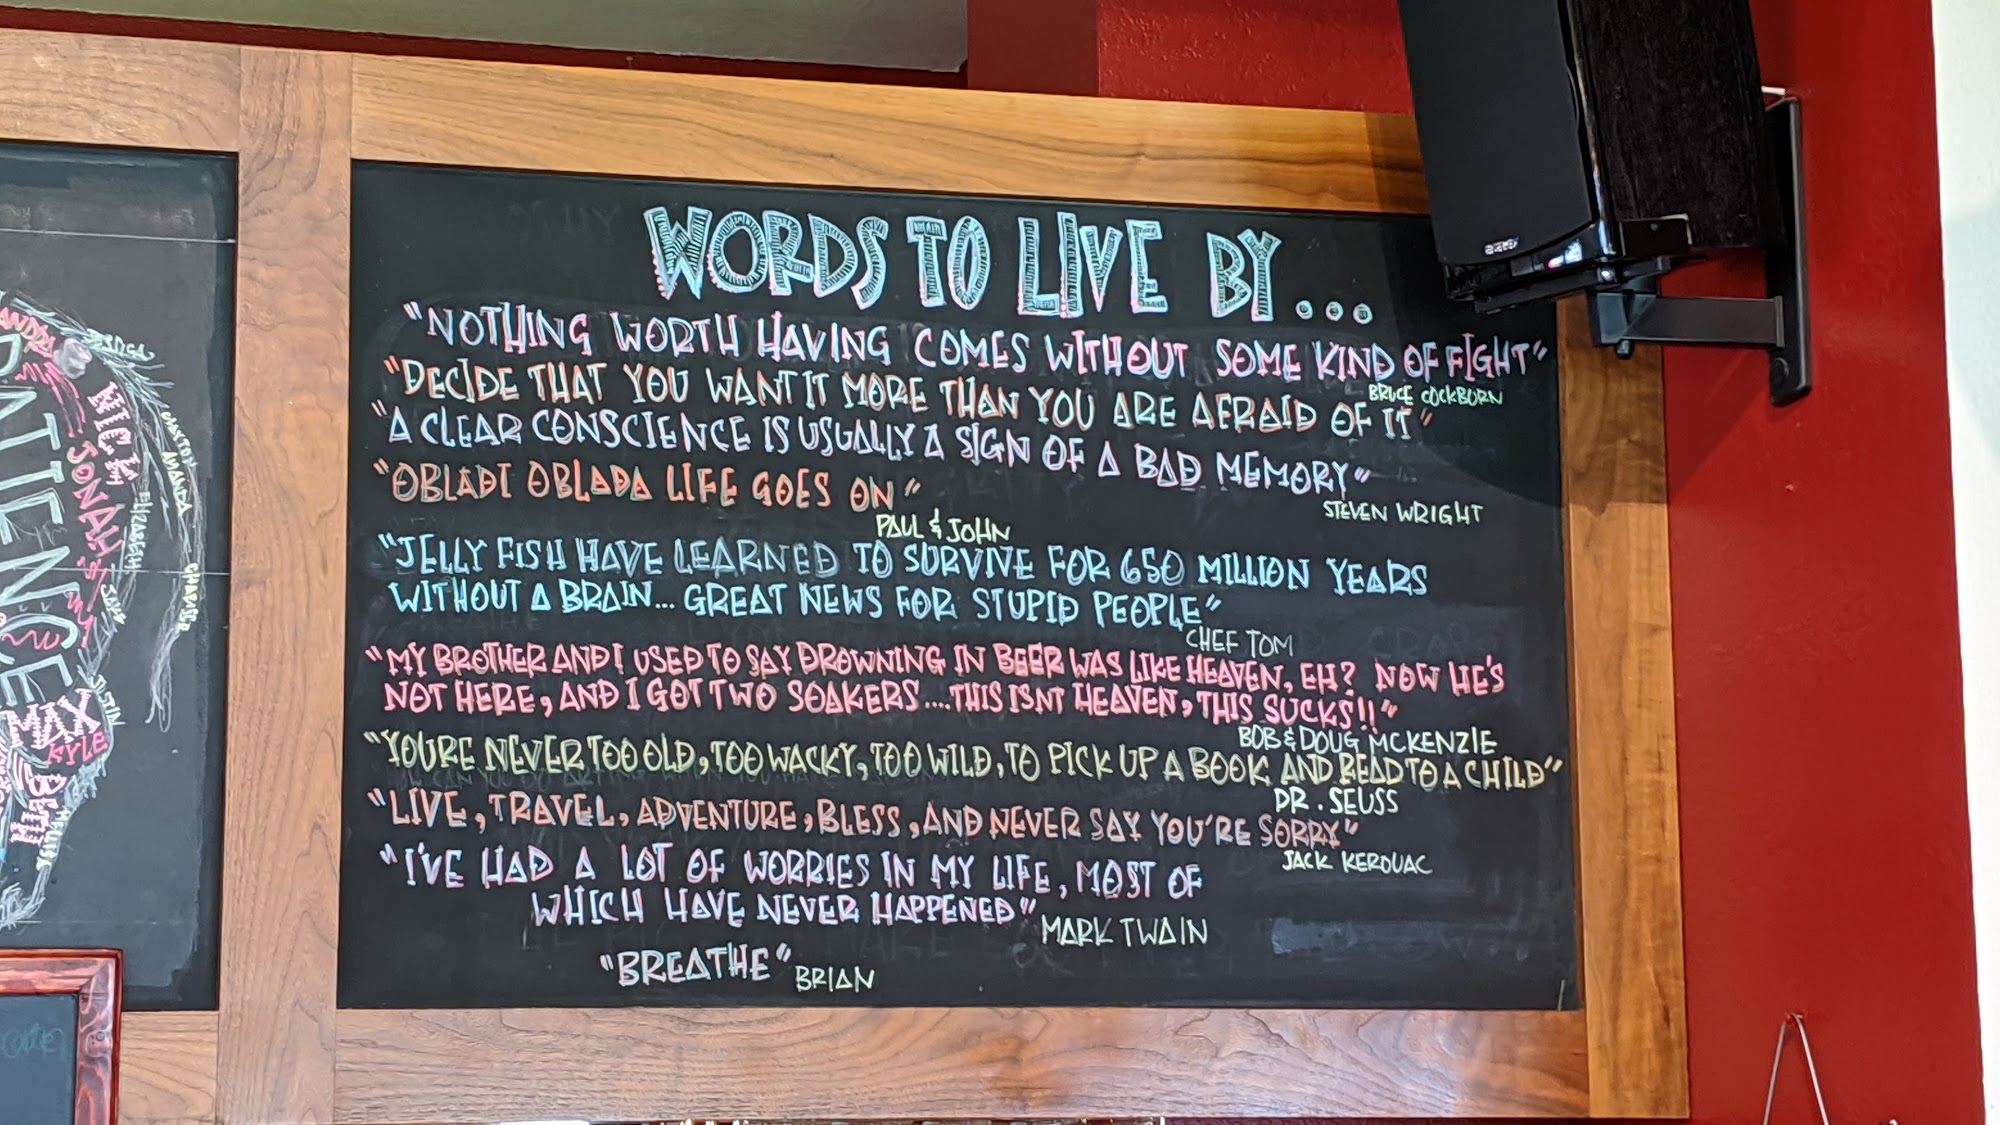 WORDS TO LIVE BY...
"NOTHING WORTH HAVING COMES WITHOUT SOME KIND OF FIGHT"
BRUCE COCKBURN
"DECIDE THAT YOU WANT IT MORE THAN YOU ARE AFRAID OF IT"
"A CLEAR CONSCIENCE IS USUALLY A SIGN OF A BAD MEMORY"
STEVEN WRIGHT
"OBLADI OBLADA LIFE GOES ON"
PAUL & JOHN
"JELLY FISH HAVE LEARNED TO SURVIVE FOR 650 MILLION YEARS
WITHOUT A BRAIN... GREAT NEWS FOR STUPID PEOPLE"
CHEF TOM
"MY BROTHER AND I USED TO SAY DROWNING IN BEER WAS LIKE HEAVEN, EH? NOW HE'S
NOT HERE, AND I GOT TWO SOAKERS....THIS ISNT HEAVEN, THIS SUCKS!!"
BOB & DOUG MCKENZIE
"YOURE NEVER TOO OLD, TOO WACKY, TOO WILD, TO PICK UP A BOOK AND READ TO A CHILD"
DR. SEUSS
"LIVE, TRAVEL, ADVENTURE, BLESS, AND NEVER SAY YOU'RE SORRY"
JACK KEROUAC
"I'VE HAD A LOT OF WORRIES IN MY LIFE, MOST OF
WHICH HAVE NEVER HAPPENED"
MARK TWAIN
"BREATHE" BRIAN
JONAH
ELIZABETH
AMANDA
CHARLIE
JUSTIN
MAX
KYLE
BETH